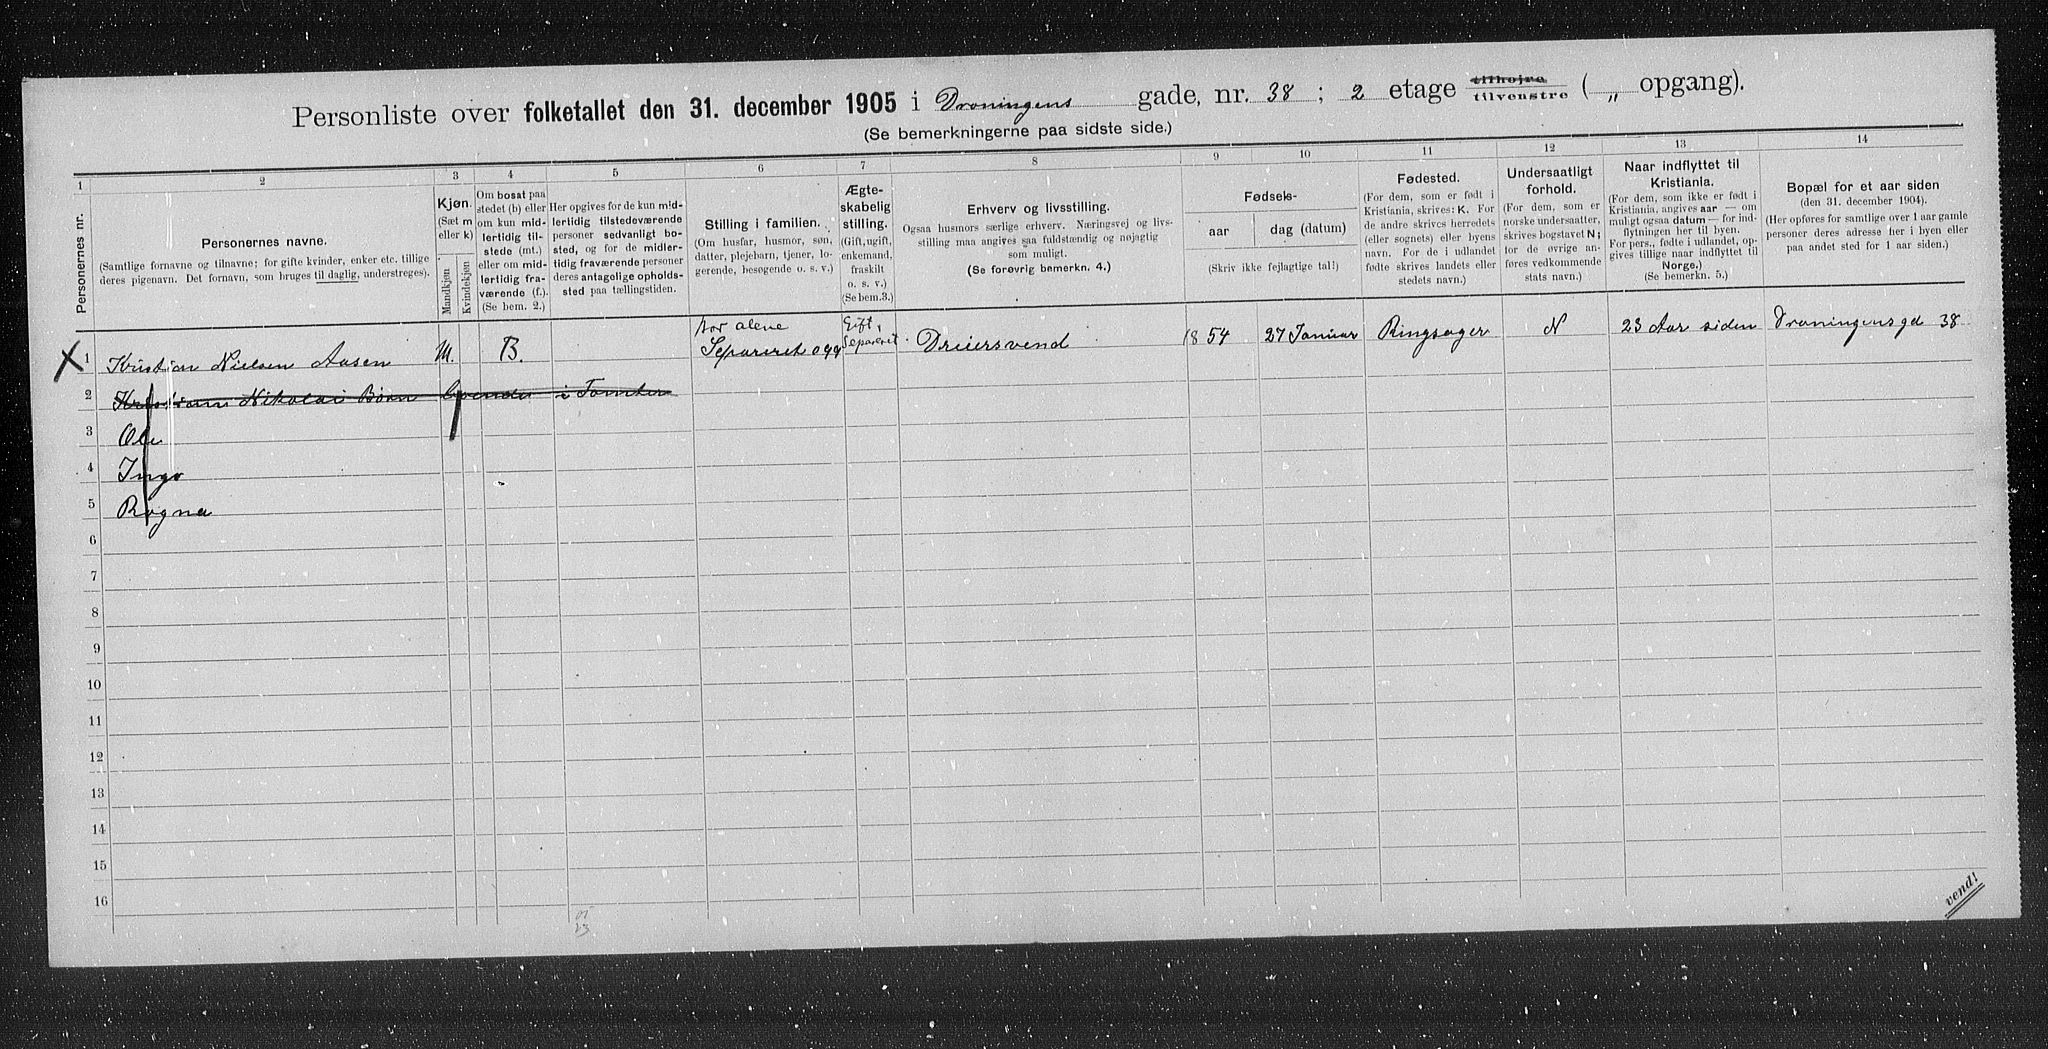 Personliste over folketallet den 31. december 1905 i Droningens gade, nr. 38 ; 2 etage tilhøjre tilvenstre ( „ opgang).
(Se bemerkningerne paa sidste side.)
1 2 3 4 5 6 7 8 9 10 11 12 13 14
Personernes nr.
Personernes navne.
(Samtlige fornavne og tilnavne; for gifte kvinder, enker etc. tillige
deres pigenavn. Det fornavn, som bruges til daglig, understreges).
Kjøn.
(Sæt m
eller k)
Mandkjøn
Kvindekjøn
Om bosat paa
stedet (b) eller
om kun mid-
lertidig til-
stede (mt.)
eller om mid-
lertidig fra-
værende (f.).
(Se bem. 2.)
Her opgives for de kun mid-
lertidig tilstedeværende
personer sedvanligt bo-
sted, og for de midler-
tidig fraværende personer
deres antagelige opholds-
sted paa tællingstiden.
Stilling i familien.
(Om husfar, husmor, søn,
datter, plejebarn, tjener, lo-
gerende, besøgende o. s. v.)
Ægte-
skabelig
stilling.
(Gift, ugift,
enkemand,
fraskilt
o. s. v.)
(Se bem.3.)
Erhverv og livsstilling.
Ogsaa husmors særlige erhverv. Næringsvej og livs-
stilling maa angives saa fuldstændig og nøjagtig
som muligt.
(Se forøvrig bemerkn. 4.)
Fødsels-
aar
dag (datum)
(Skriv ikke fejlagtige tal!)
Fødested.
(For dem, som er født i
Kristiania, skrives: K. For
de andre skrives herredets
(eller sognets) eller byens
navn. For de i udlandet
fødte skrives landets eller
stedets navn.)
Undersaatligt
forhold.
(For dem, som er
norske undersaatter,
skrives bogstavet N;
for de øvrige an-
føres vedkommende
stats navn.)
Naar indflyttet til
Kristiania.
(For dem, som ikke er født i
Kristiania, angives aar — om
muligt ogsaa datum — for ind-
flytningen her til byen.
For pers., fødte i udlandet, op-
gives tillige naar indflyttet til
Norge.)
(Se bemerkn. 5.)
Bopæl for et aar siden
(den 31. december 1904).
(Her opføres for samtlige over 1 aar gamle
personer deres adresse her i byen eller
paa andet sted for 1 aar siden.)
X 1 Kristian Nielsen Aasen M. B. bor alene Separeret Gift, Separeret Dreiersvend 1854 27 Januar Ringsager N 23 Aar siden Droningensgd 38
2 Kristian Nikolai Børn i
3 Ole
4 Inga
5 Ragna
6
7
8
9
10
11
12
13
14
15
16
vend!